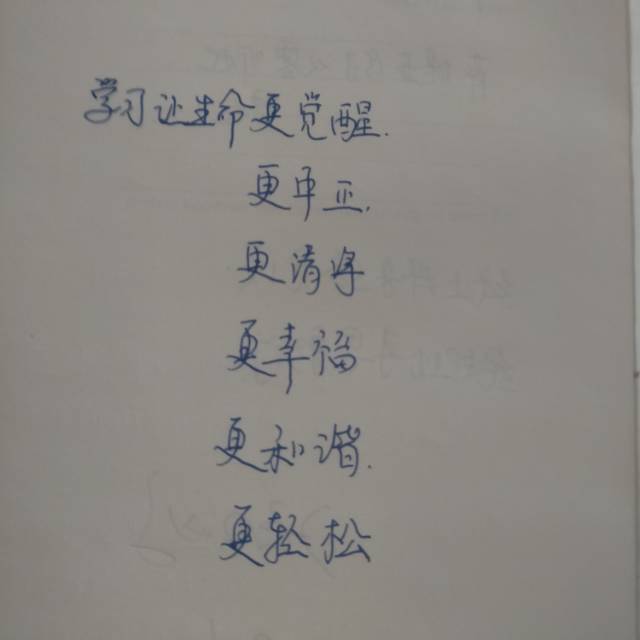 学习让生命更觉醒.
更中正.
更清净
更幸福
更和谐.
更轻松